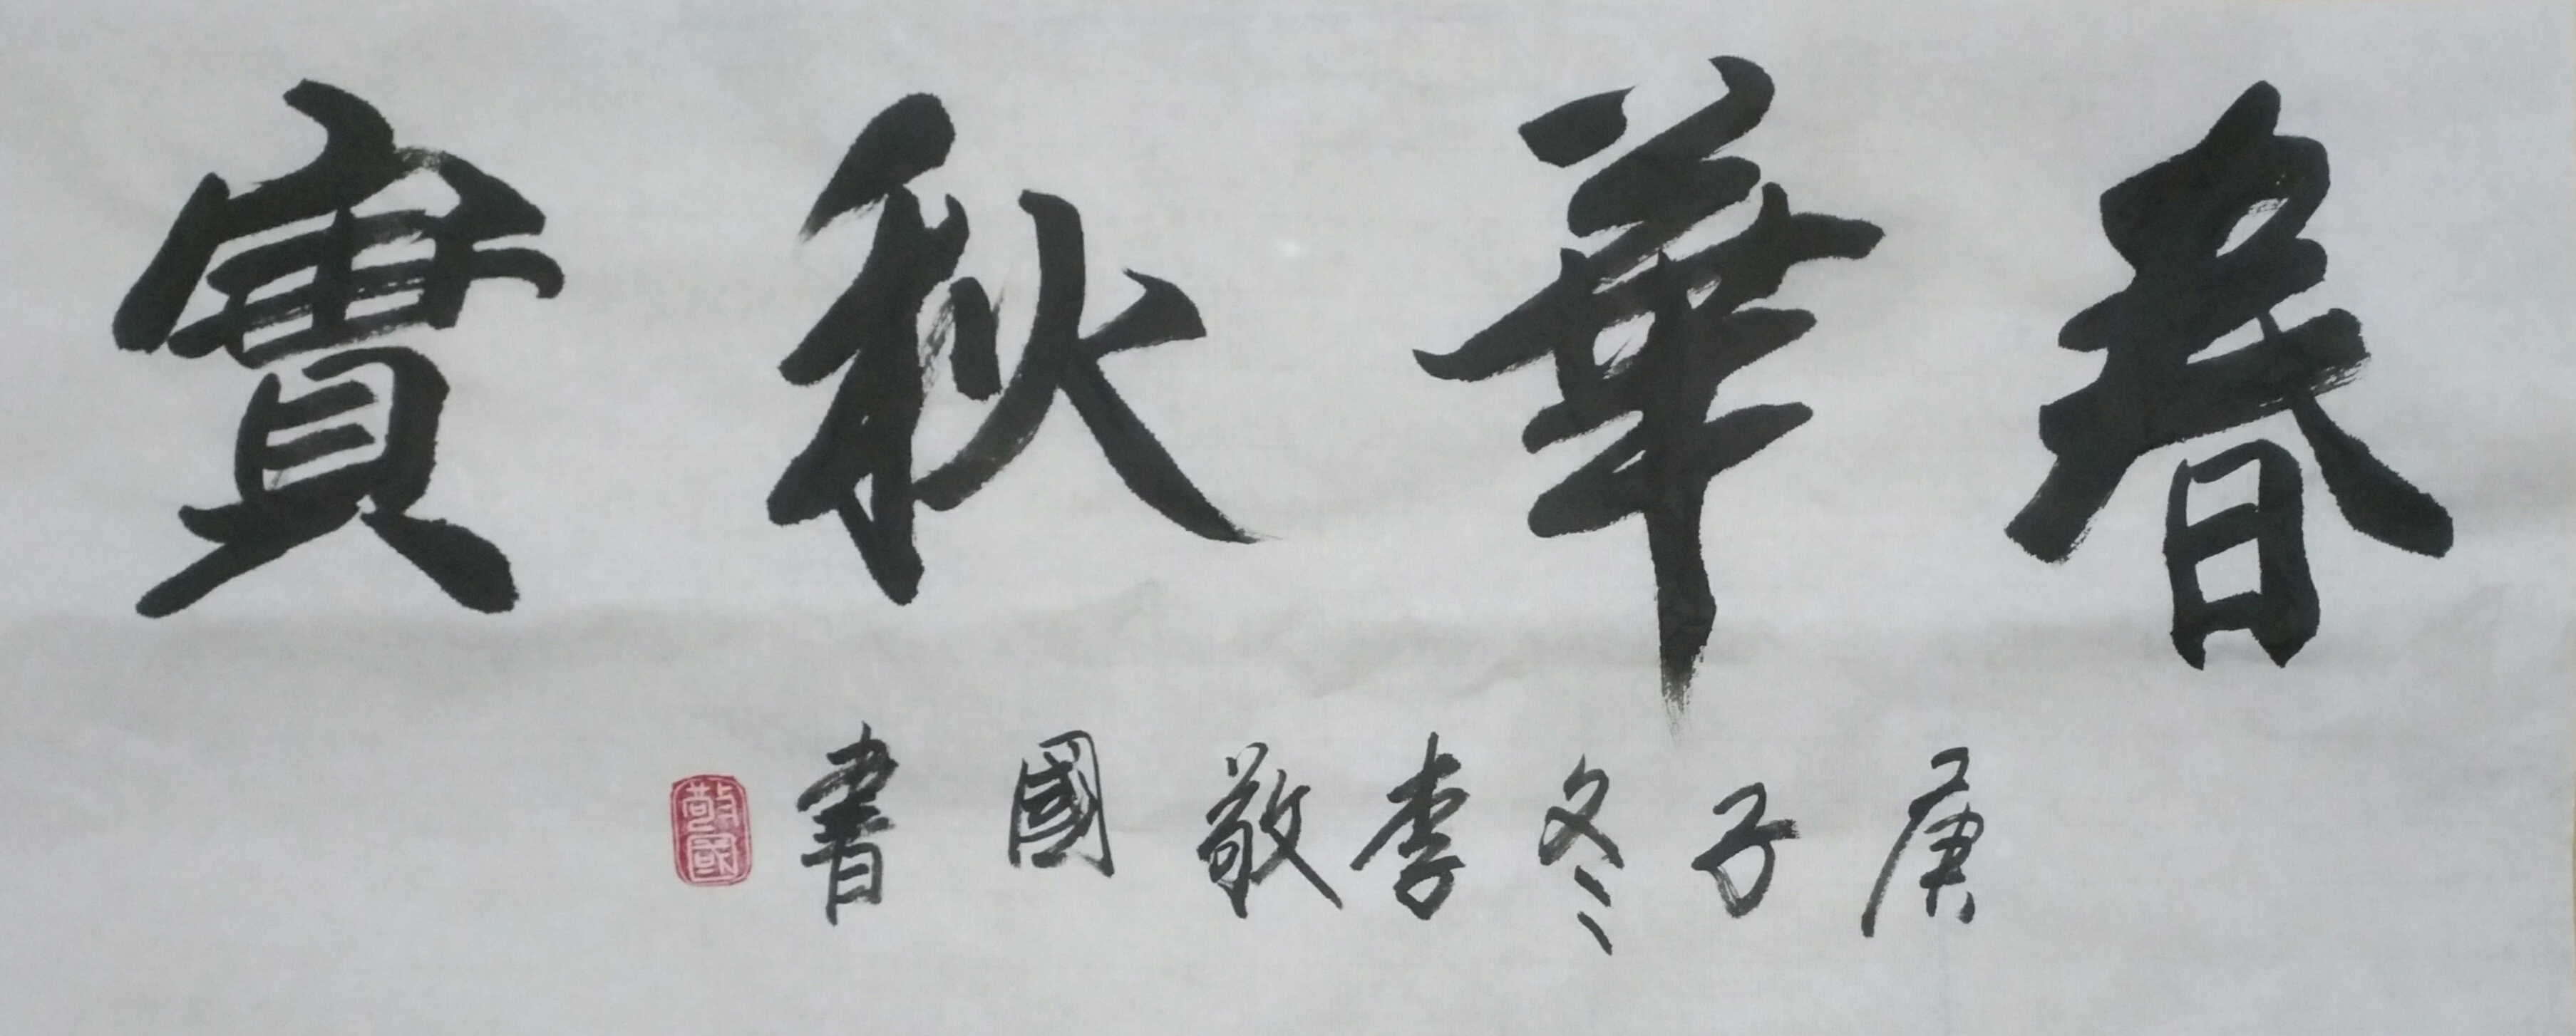 春華秋實
庚子冬李敬國書
敬國